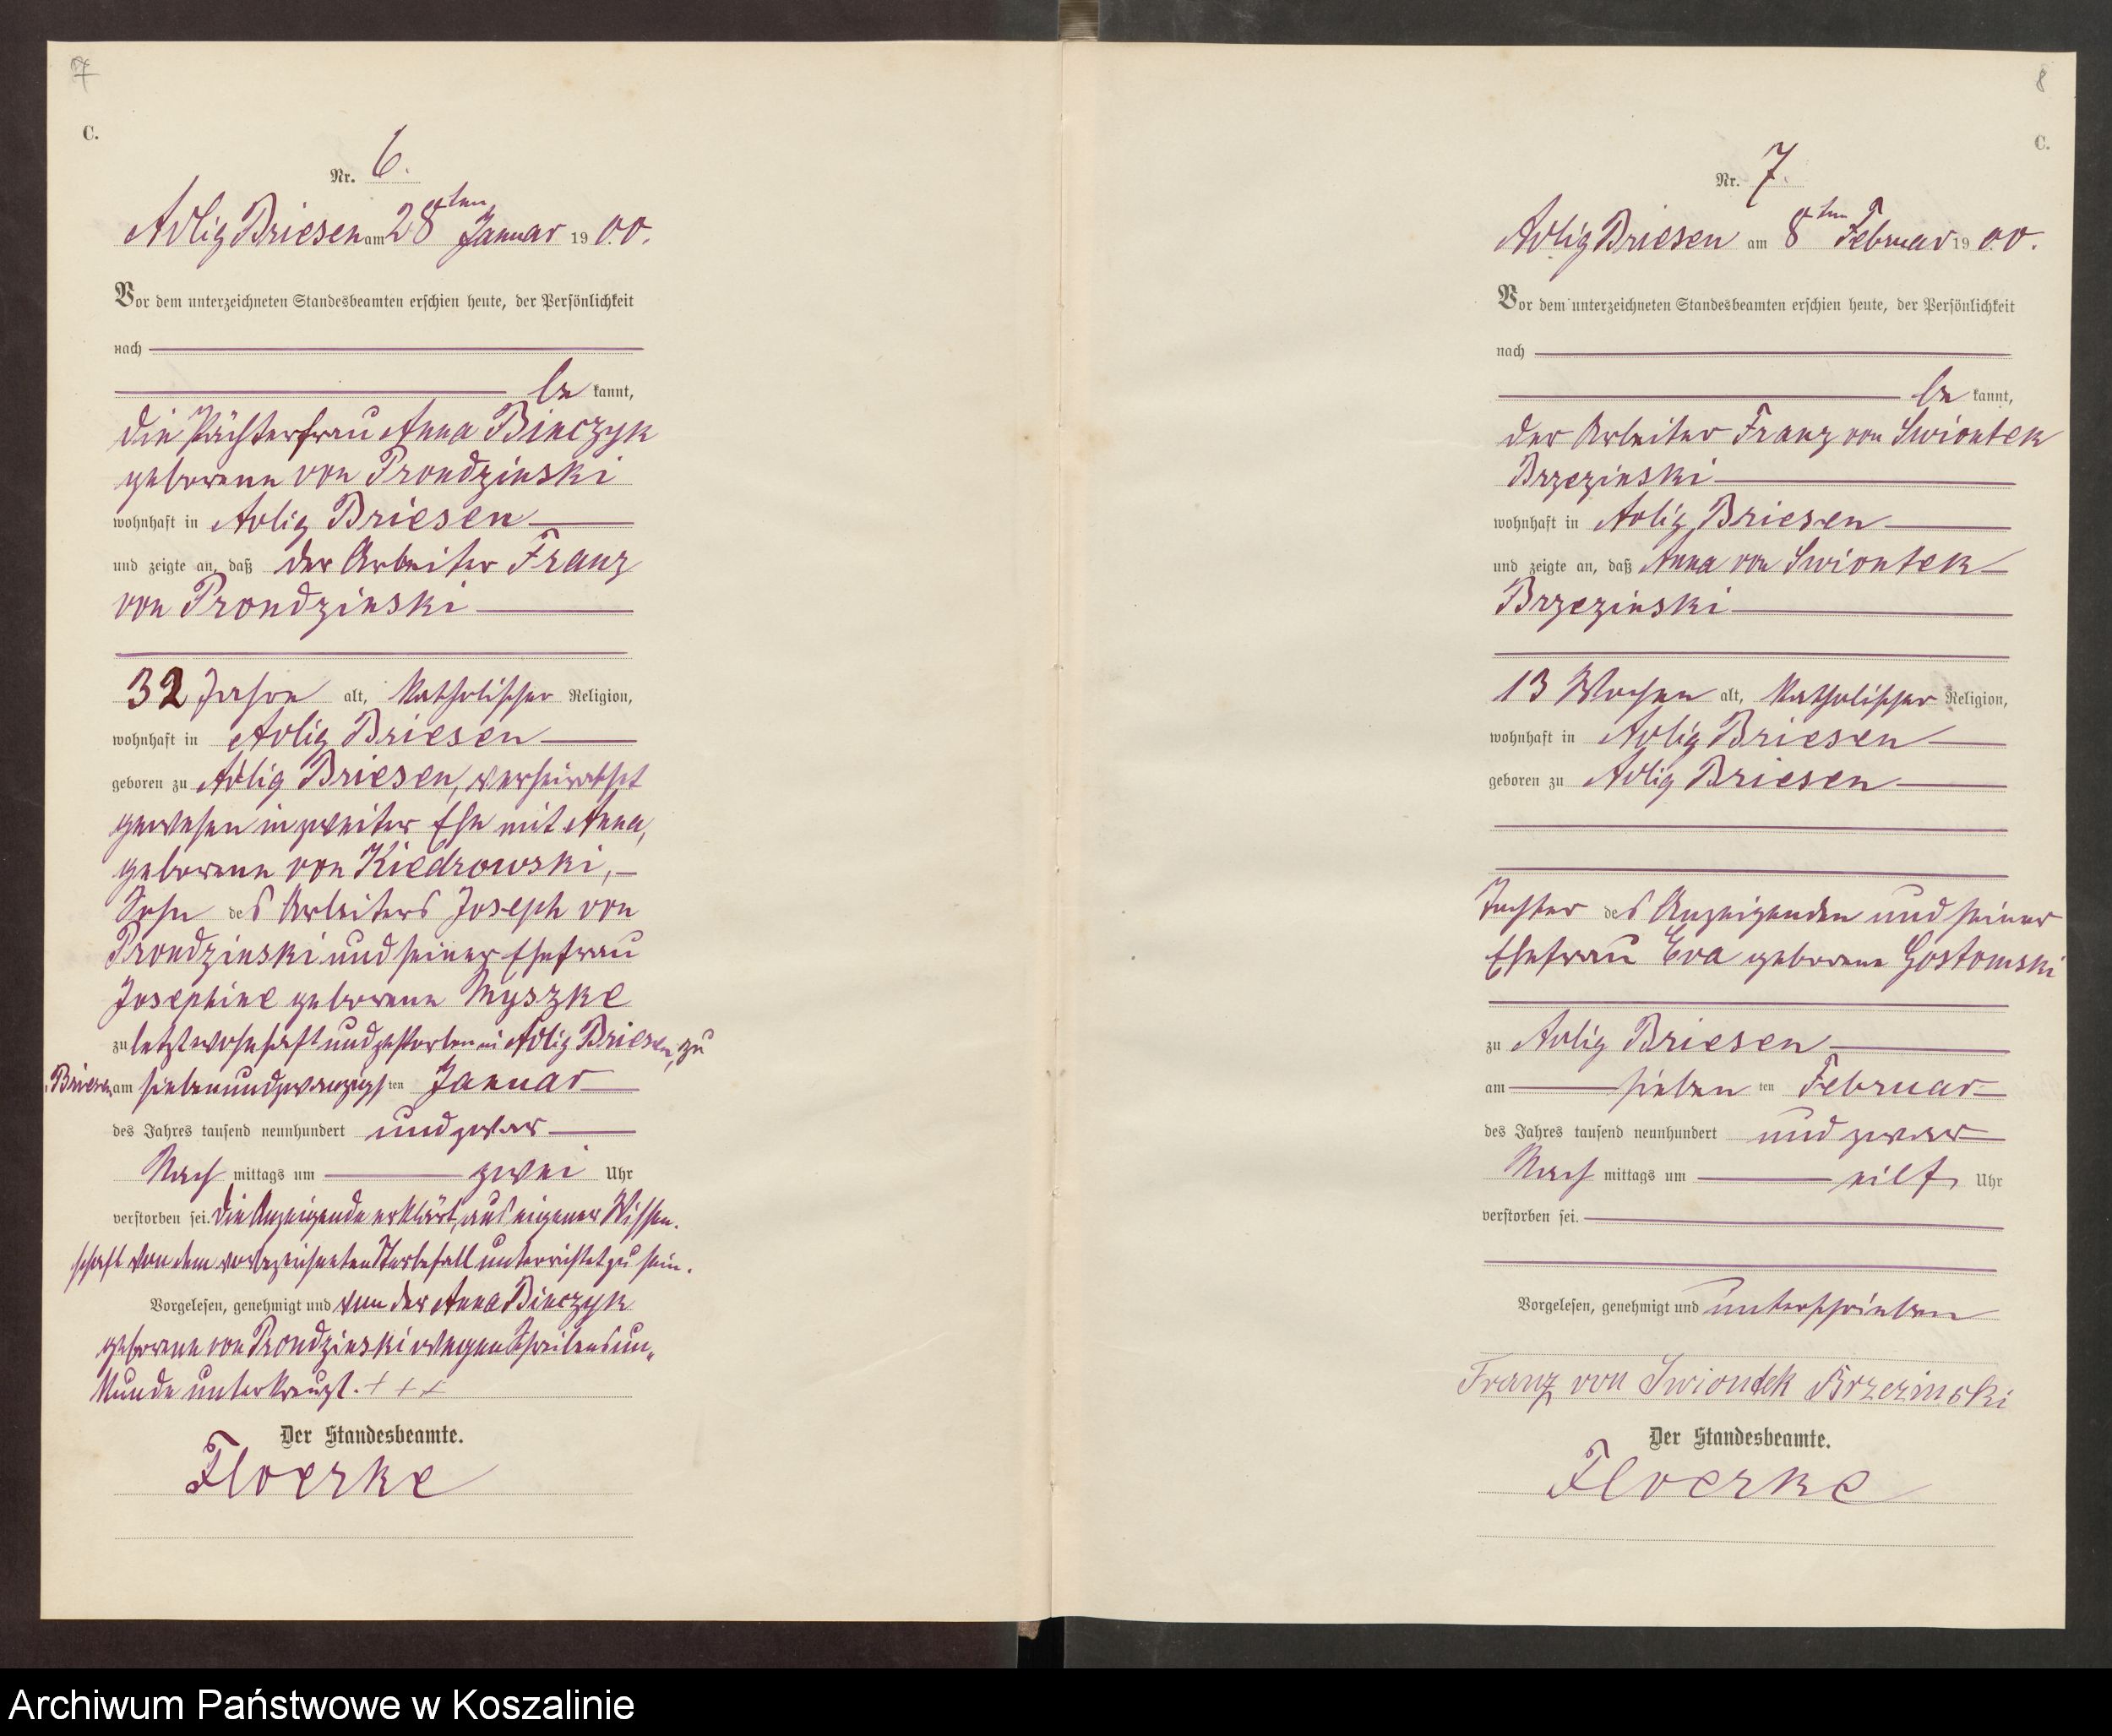 7
C.
Nr. 6.
Adlig Briesen am 28ten Januar 1900.
Vor dem unterzeichneten Standesbeamten erschien heute, der Persönlichkeit
nach
be kannt,
die Pächterfrau Anna Binczyk
geborene von Prondzinski
wohnhaft in Adlig Briesen
und zeigte an, daß der Arbeiter Franz
von Prondzinski
32 Jahre alt, katholischer Religion,
wohnhaft in Adlig Briesen
geboren zu Adlig Briesen, verheirathet
gewesen in zweiter Ehe mit Anna,
geborene von Kiedrowski,
Sohn des Arbeiters Joseph von
Prondzinski und seiner Ehefrau
Josephine geborene Myszke
zu letzt wohnhaft und gestorben in Adlig Briesen, zu
Briesen am siebenundzwanzigsten Januar
des Jahres tausend neunhundert und zwar
Nach mittags um zwei Uhr
verstorben sei. Die Anzeigende erklärt, aus eigener Wissen-
schaft von dem vorbezeichneten Sterbefall unterrichtet zu sein.
Vorgelesen, genehmigt und von der Anna Binczyk
geborene von Prondzinski wegen Schreibensun-
kunde unterkreuzt. + + +
Der Standesbeamte.
Floerke
8
C.
Nr. 7.
Adlig Briesen am 8ten Februar 1900.
Vor dem unterzeichneten Standesbeamten erschien heute, der Persönlichkeit
nach
be kannt,
der Arbeiter Franz von Swiontek
Brzezinski
wohnhaft in Adlig Briesen
und zeigte an, daß Anna von Swiontek
Brzezinski
13 Wochen alt, katholischer Religion,
wohnhaft in Adlig Briesen
geboren zu Adlig Briesen
Tochter des Anzeigenden und seiner
Ehefrau Eva geborene Gostomski
zu Adlig Briesen
am sieben ten Februar
des Jahres tausend neunhundert und zwar
Nach mittags um eilf Uhr
verstorben sei.
Vorgelesen, genehmigt und unterschrieben
Franz von Swiontek Brzezinski
Der Standesbeamte.
Floerke
Archiwum Państwowe w Koszalinie